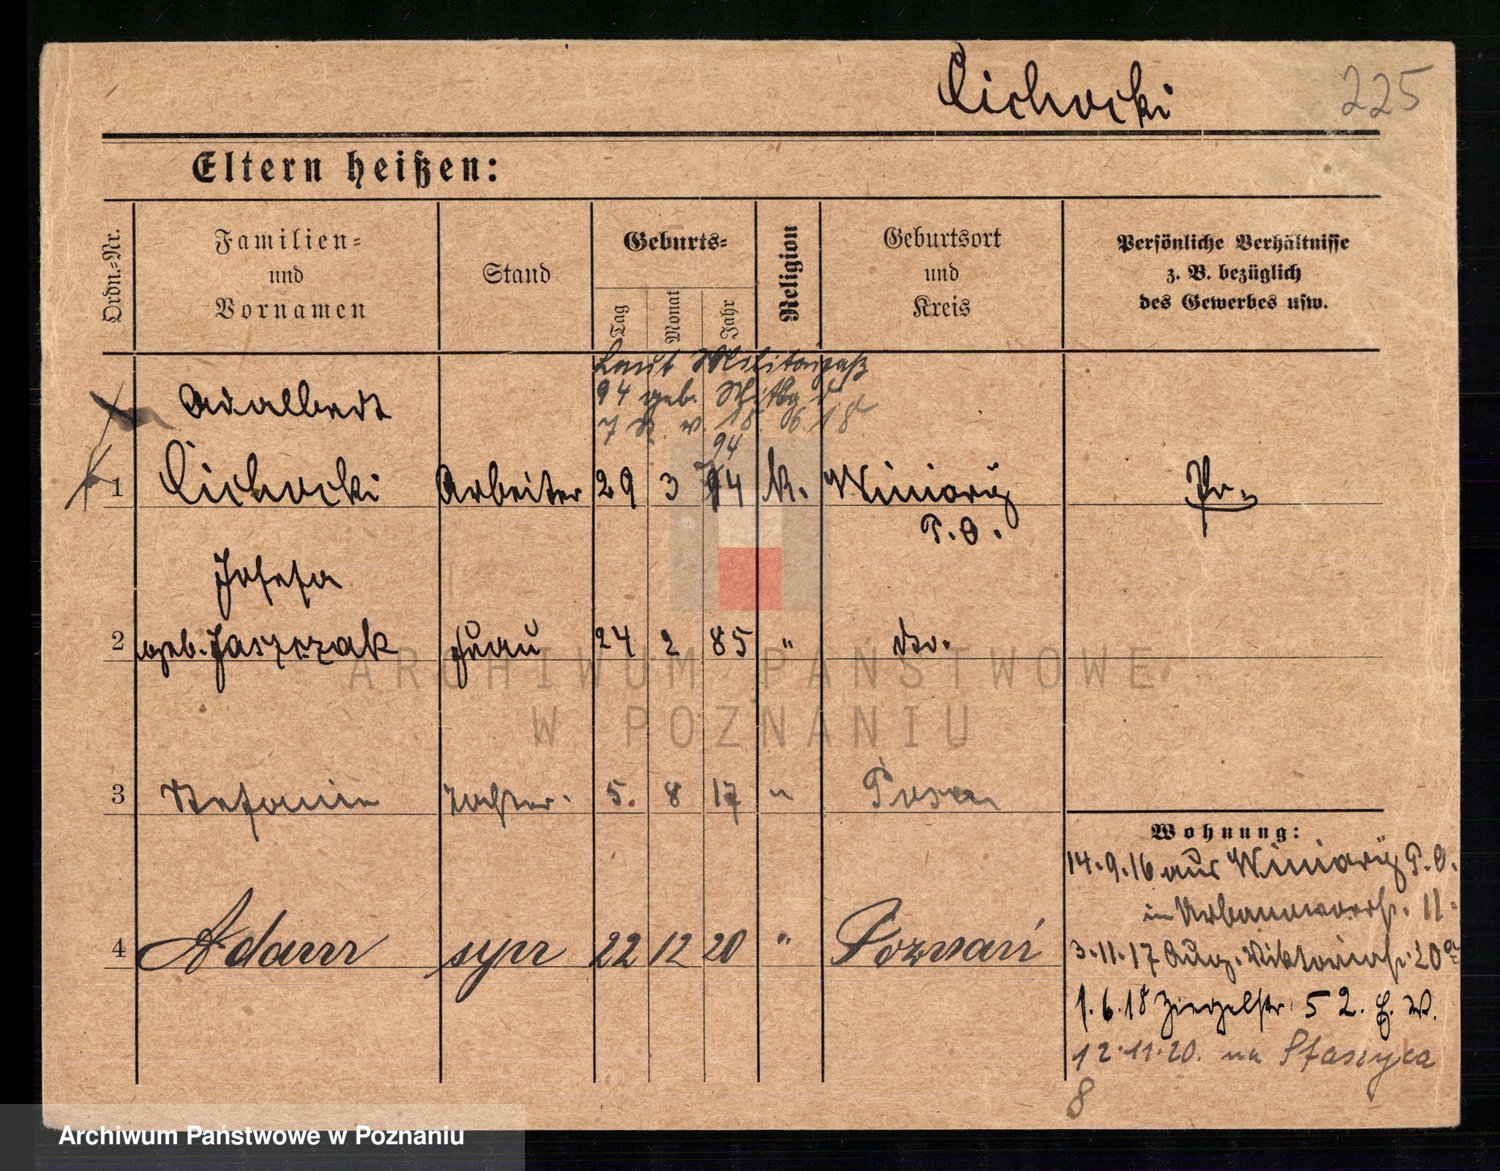 Cichocki
225
Eltern heißen:
Ordn.-Nr.
Familien-
und
Vornamen
Stand
Geburts-
Tag
Monat
Jahr
Religion
Geburtsort
und
Kreis
Persönliche Verhältnisse
z. B. bezüglich
des Gewerbes usw.
Laut Militärpaß
94 geb.
7 v. 18.6.18
Adalbert
94
1 Cichocki Arbeiter 29 3 K. Winiary Pr.
P. O.
Josefa
2 geb. Jaszczak Frau 24 2 85 " do.
3 Stefanie Tochter. 5. 8 17 " Posen
4 Adam syn 22 12 20 " Poznań
Wohnung:
14.9.16 aus Winiary P. O.
in Urbanowostr. 11.
3.11.17 Aug. Viktoriastr. 20a
1.6.18 Ziegelstr. 5 2. E. W.
12.11.20. na Staszyca
8
ARCHIWUM PAŃSTWOWE
W POZNANIU
Archiwum Państwowe w Poznaniu